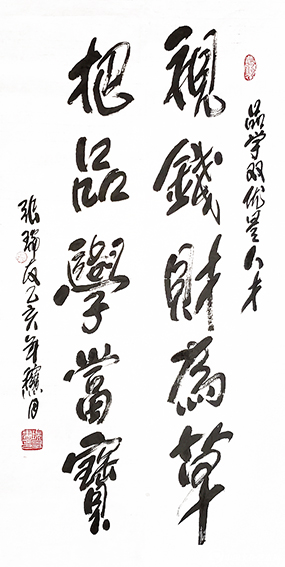 品学双优是人才
視錢財為草
把品學當寶
张瑞 乙亥年臘月